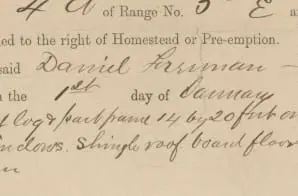 4 N of Range No. 5 E a
ed to the right of Homestead or Pre-emption.
said Daniel Freeman
n the 1st day of January
t log & part frame 14 by 20 feet on
indows. Shingle roof board floor